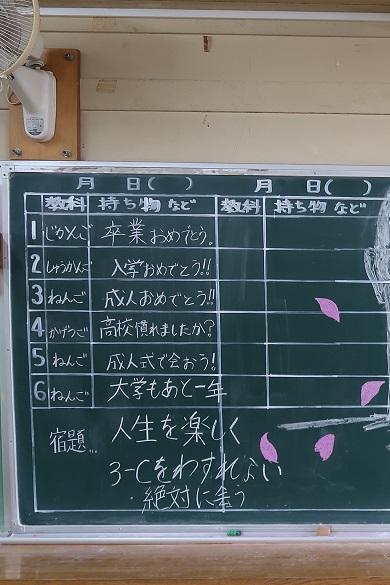 月 日( ) 月 日( )
教科 持ち物など 教科 持ち物など
1 卒業おめでとう。
2 入学おめでとう!!
3 ねんご 成人おめでとう!!
4 かげつご 高校慣れましたか?
5 ねんご 成人式で会おう!
6 ねんご 大学もあと一年
宿題… 人生を楽しく
3-Cをわすれない
・絶対に会う